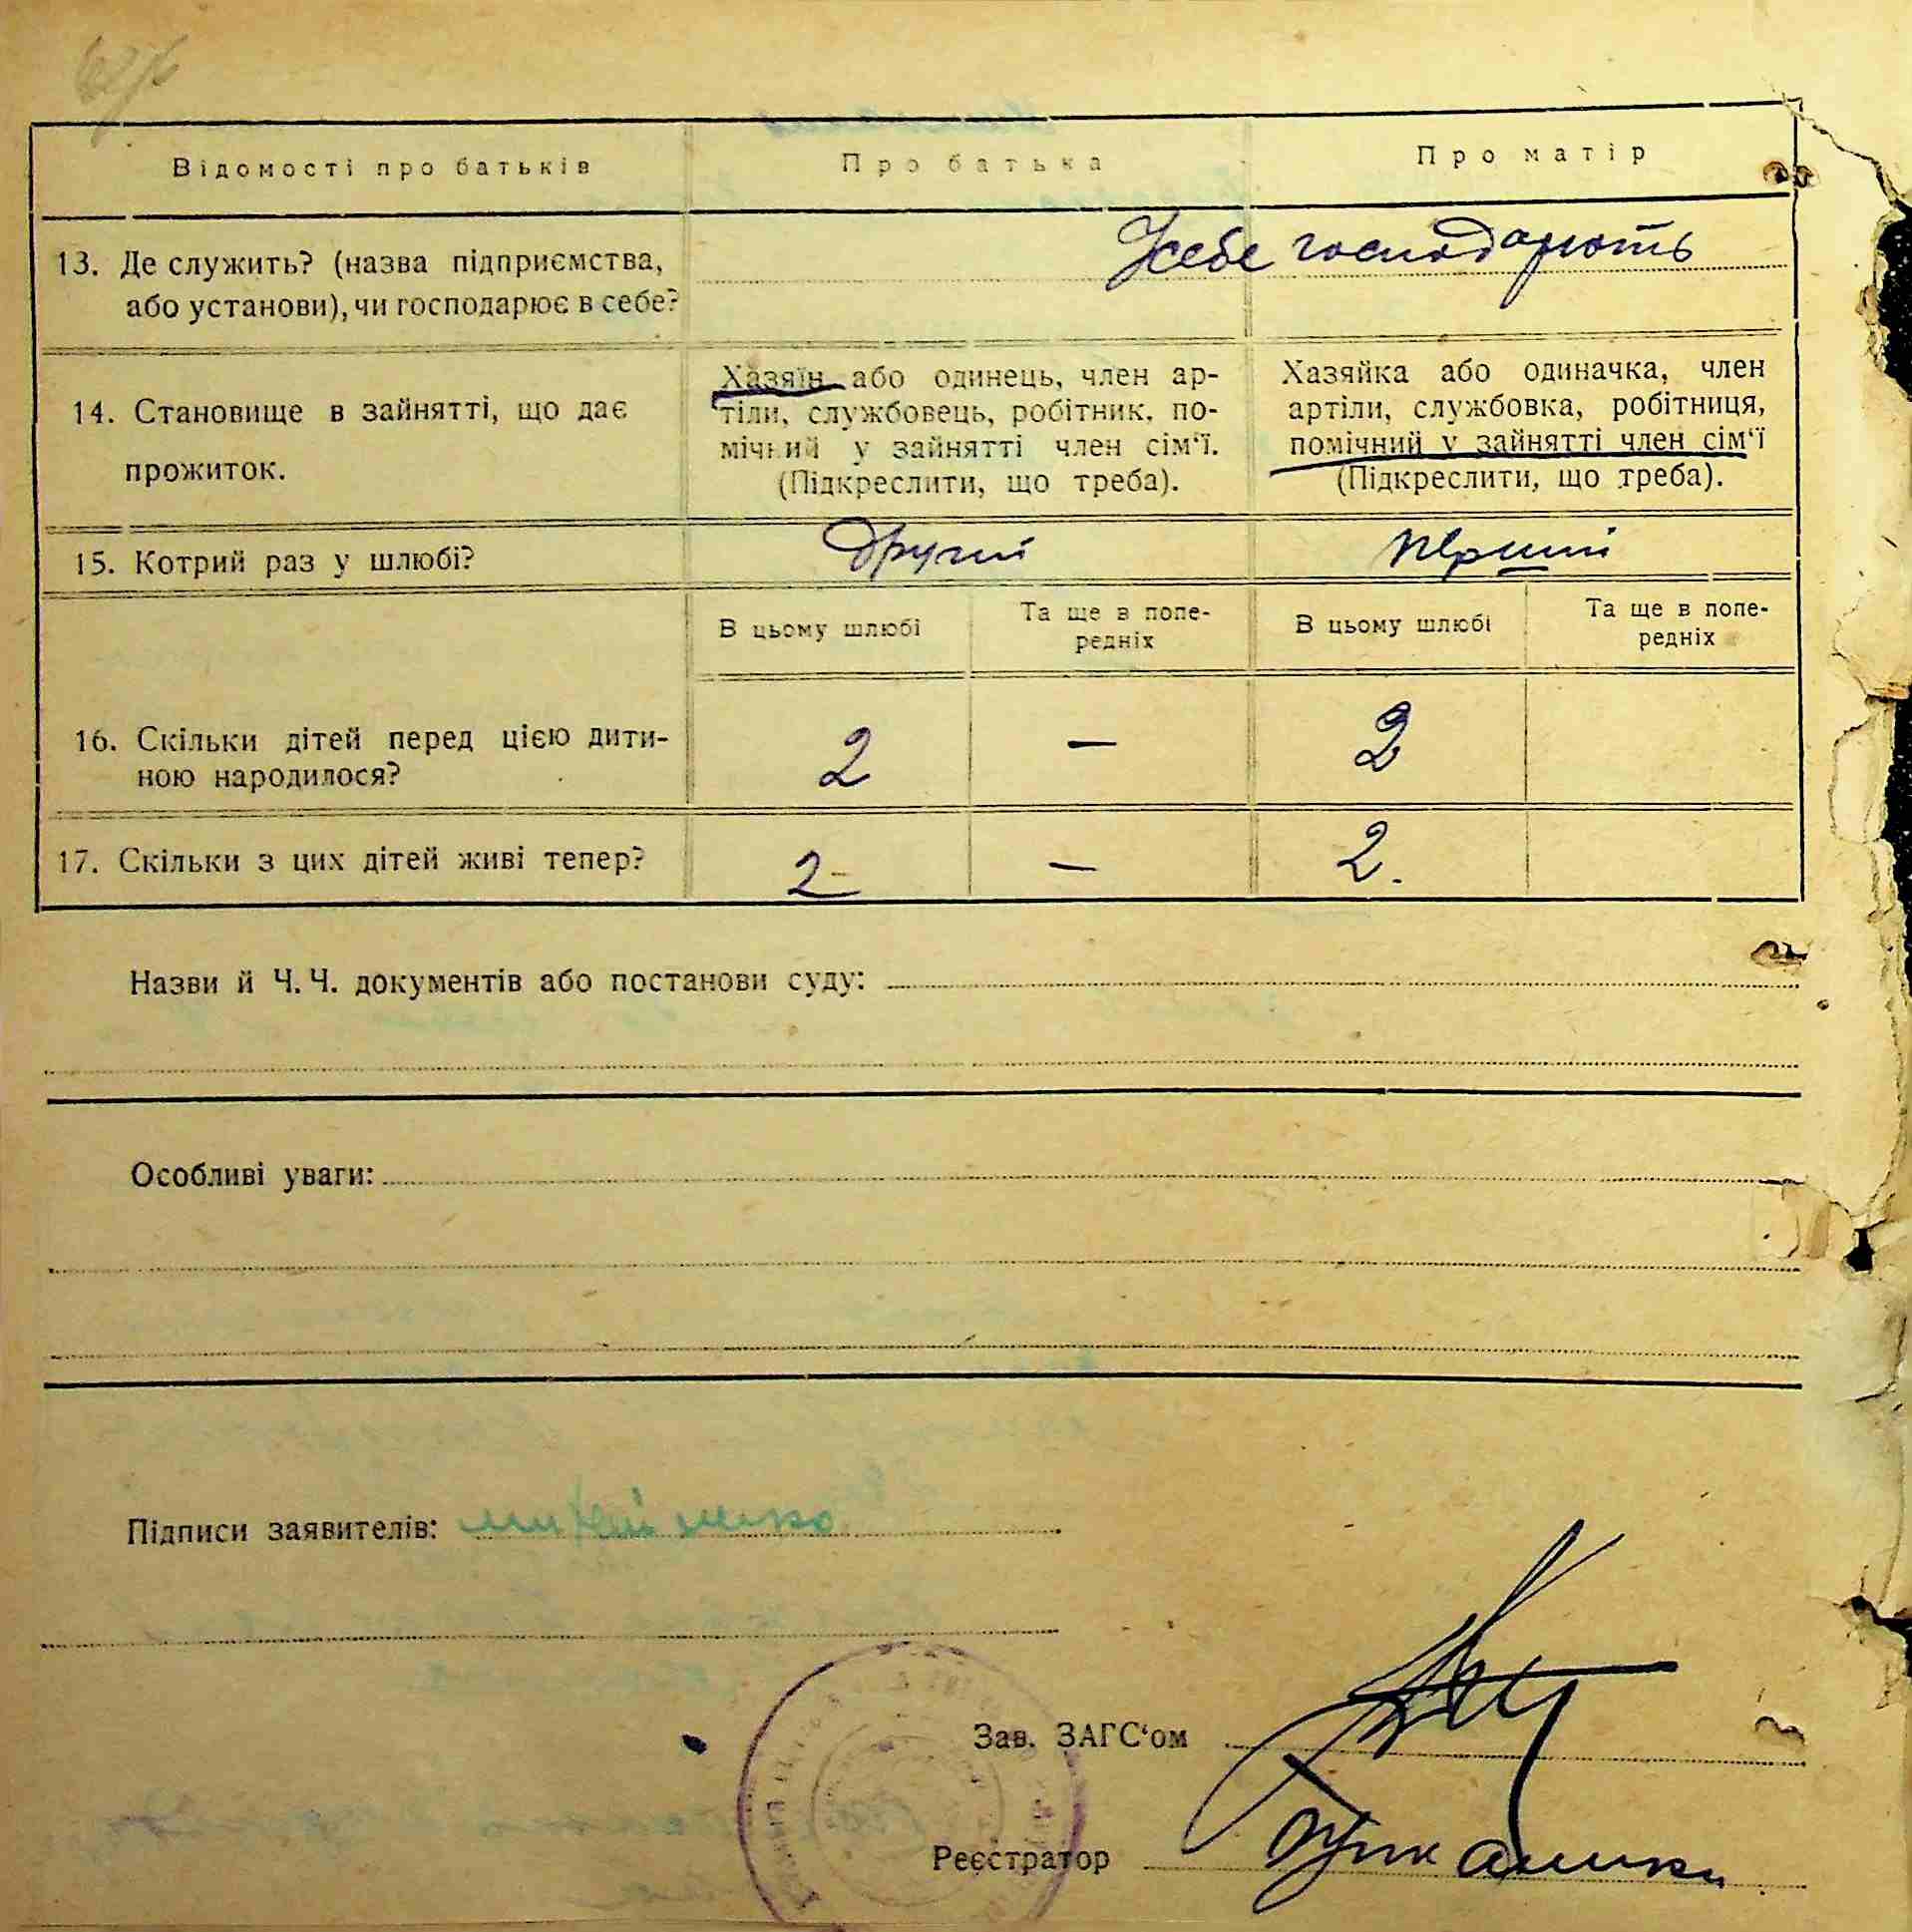 Відомості про батьків
Про батька
Про матір
13. Де служить? (назва підприємства,
або установи), чи господарює в себе?
Усебе господарють
14. Становище в зайнятті, що дає
прожиток.
Хазяїн або одинець, член ар-
тіли, службовець, робітник, по-
мічний у зайнятті член сім‘ї.
(Підкреслити, що треба).
Хазяйка або одиначка, член
артіли, службовка, робітниця,
помічний у зайнятті член сім‘ї
(Підкреслити, що треба).
15. Котрий раз у шлюбі?
другий
перший
В цьому шлюбі
Та ще в попе-
редніх
В цьому шлюбі
Та ще в попе-
редніх
16. Скільки дітей перед цією дити-
ною народилося?
2
—
2
17. Скільки з цих дітей живі тепер?
2
—
2.
Назви й Ч. Ч. документів або постанови суду:
Особливі уваги:
Підписи заявителів:
Зав. ЗАГС‘ом
Реєстратор